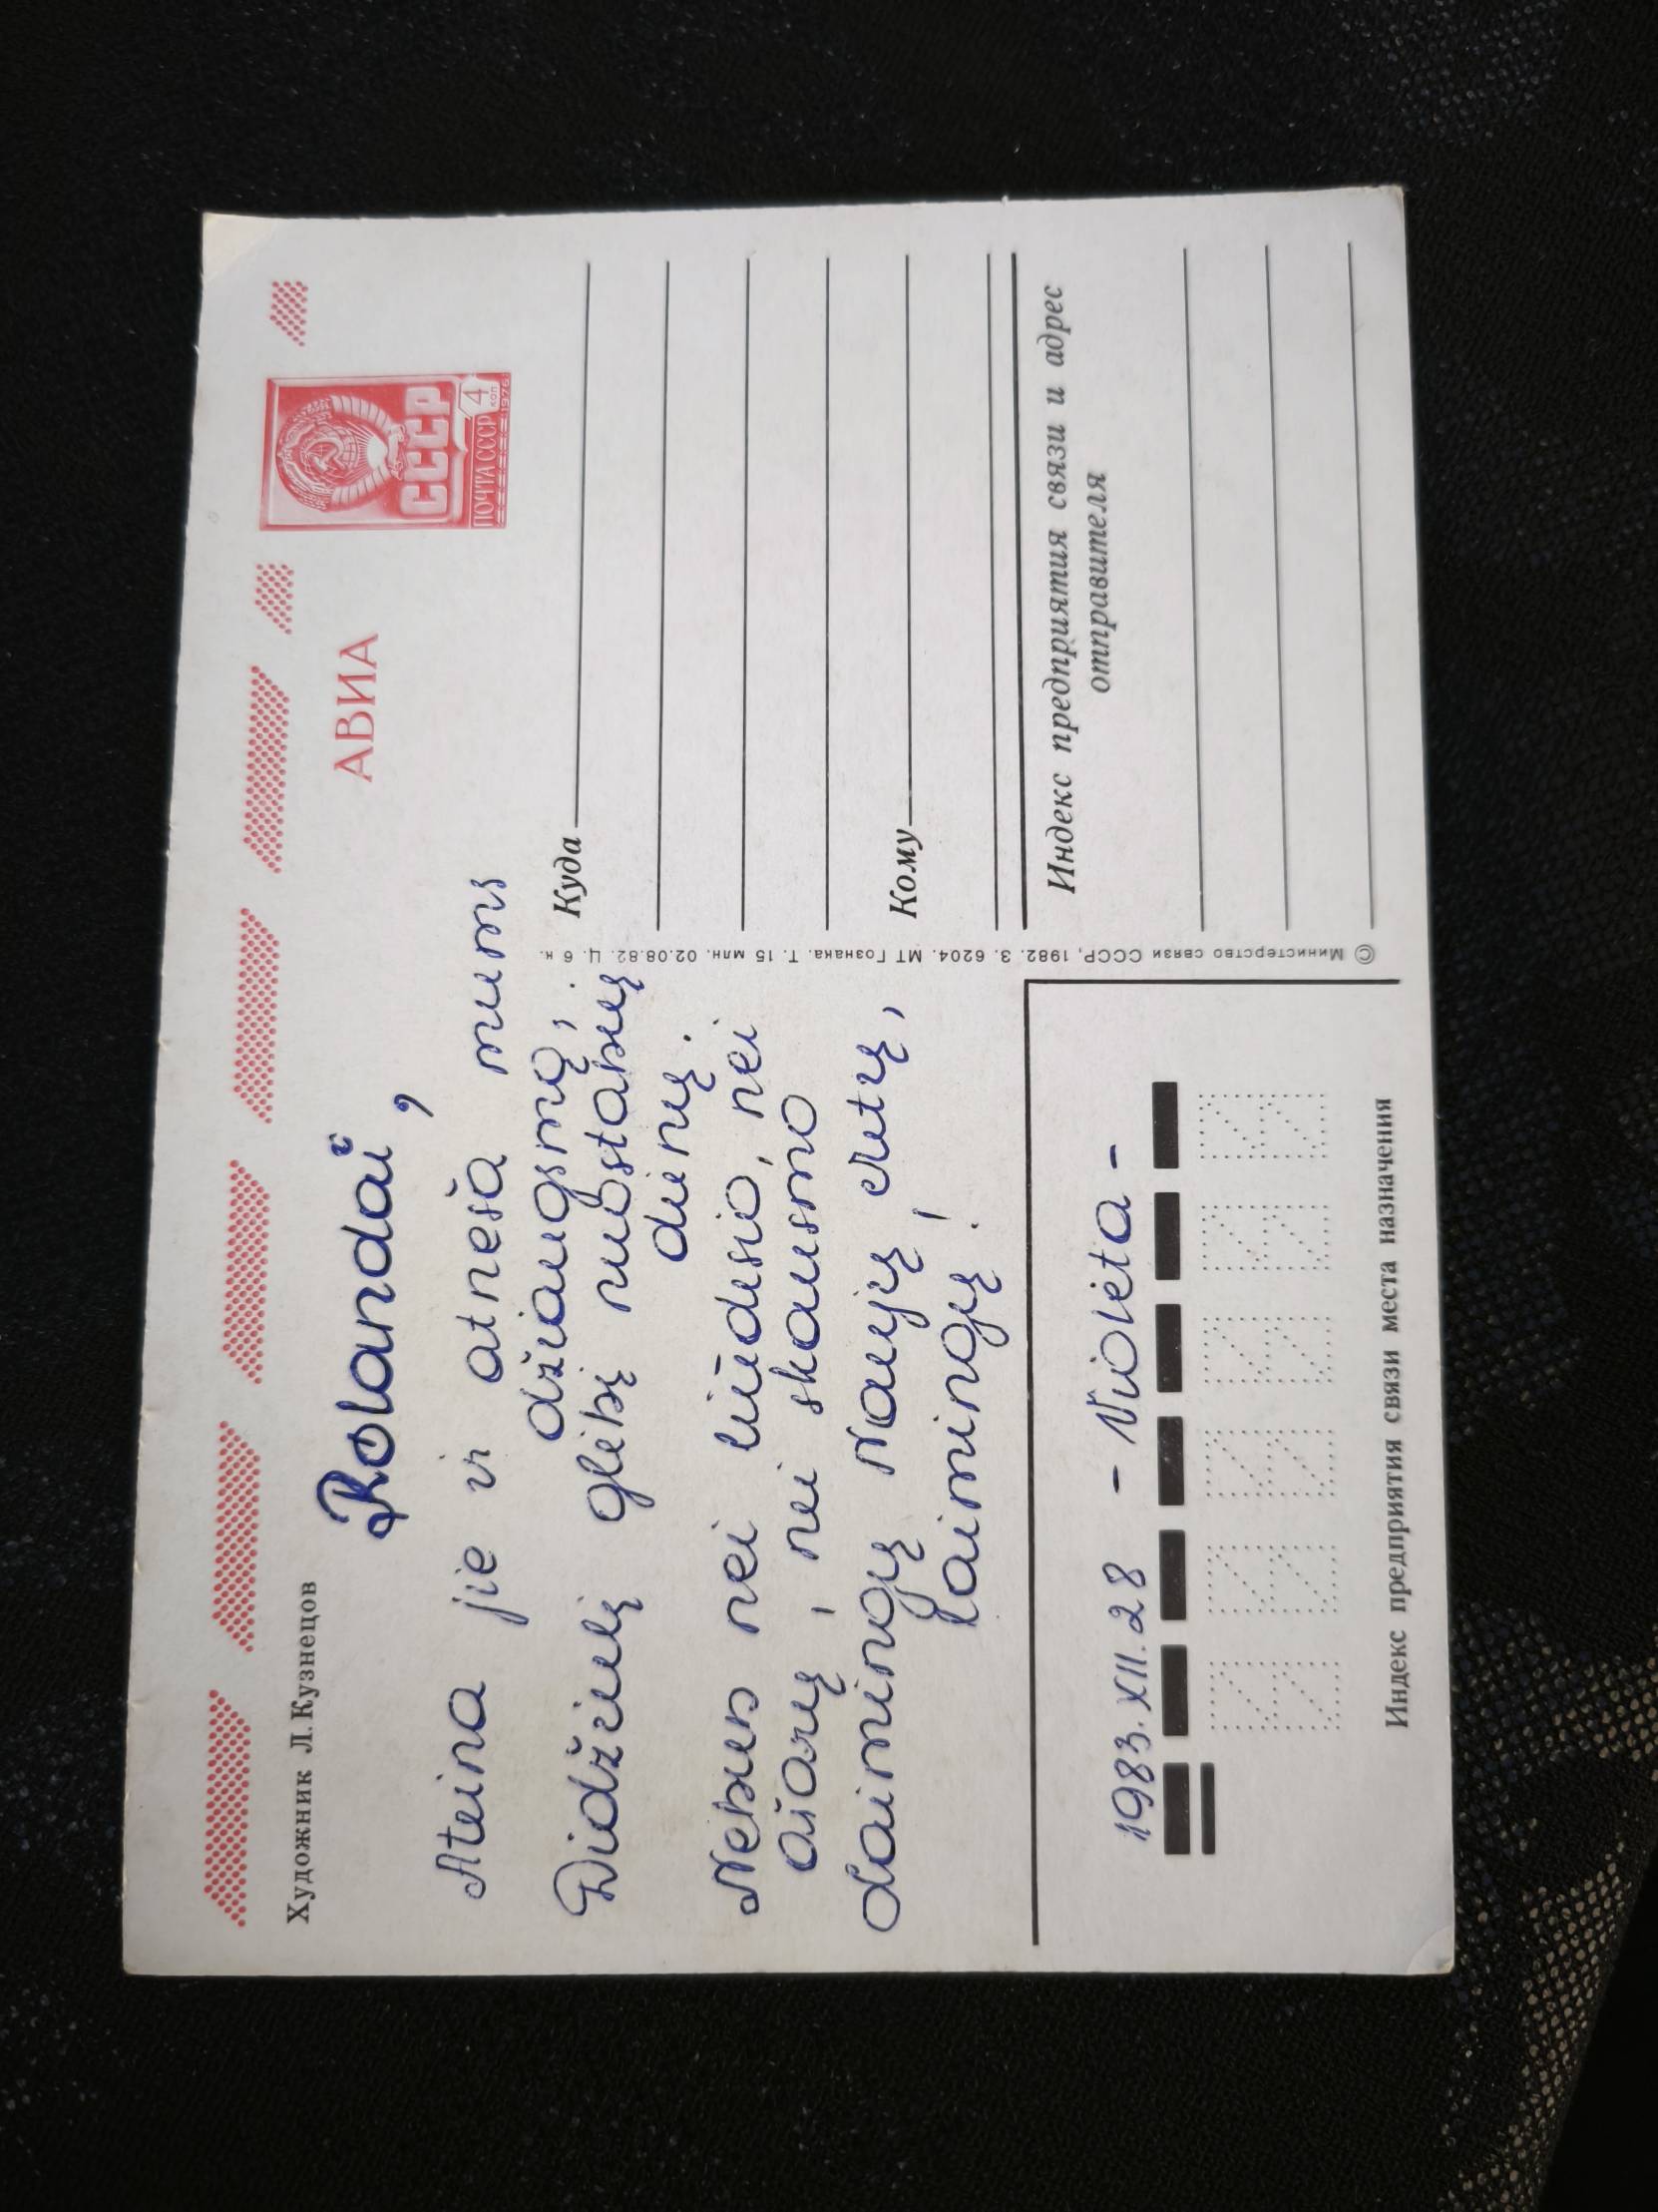 Художник Л. Кузнецов
Rolandai,
Ateina jie ir atneša mums
džiaugsmą,
Didžiulį glėbį nuostabių
dienų.
Nebus nei liūdesio, nei
ašarų, nei skausmo
Laimingų Naujų Metų,
laimingų!
1983.XII.28 - Violeta -
Индекс предприятия связи места назначения
© Министерство связи СССР, 1982. З. 6204. МТ Гознака. Т. 15 млн. 02.08.82. Ц. 6 к.
АВИА
СССР
ПОЧТА СССР 4 КОП
1976
Куда
Кому
Индекс предприятия связи и адрес
отправителя